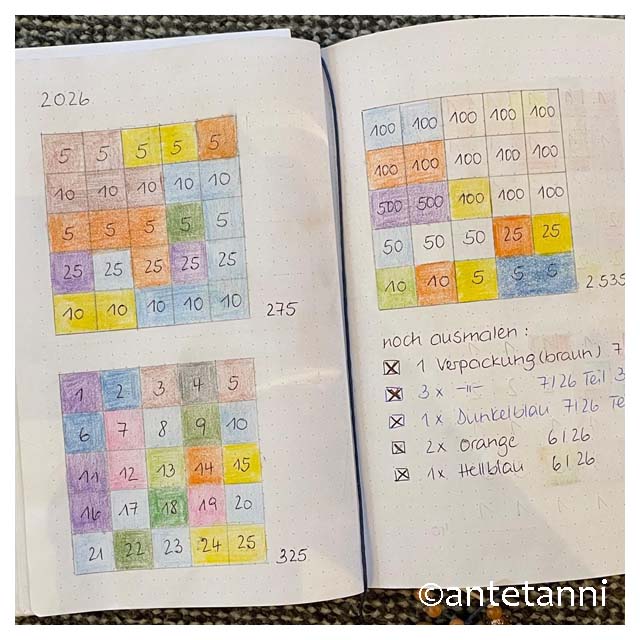 2026
5 5 5 5 5
10 10 10 10 10
5 5 5 5 5
25 25 25 25 25
10 10 10 10 10
275
1 2 3 4 5
6 7 8 9 10
11 12 13 14 15
16 17 18 19 20
21 22 23 24 25
325
100 100 100 100 100
100 100 100 100 100
500 500 100 100 100
50 50 50 25 25
10 10 5 5 5
2.535
noch ausmalen:
1 Verpackung (braun) 7
3 x -"- 7/26 Teil 3
1x Dunkelblau 7/26 Te
2x orange 6/26
1x Hellblau 6/26
©antetanni